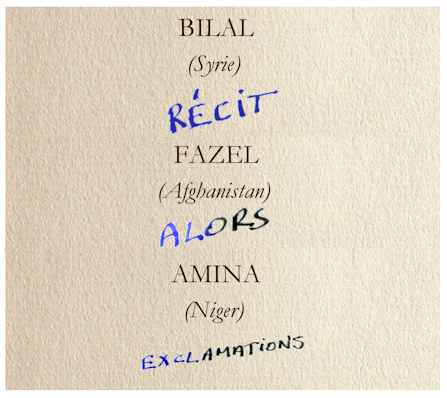 BILAL
(Syrie)
RÉCIT
FAZEL
(Afghanistan)
ALORS
AMINA
(Niger)
EXCLAMATIONS